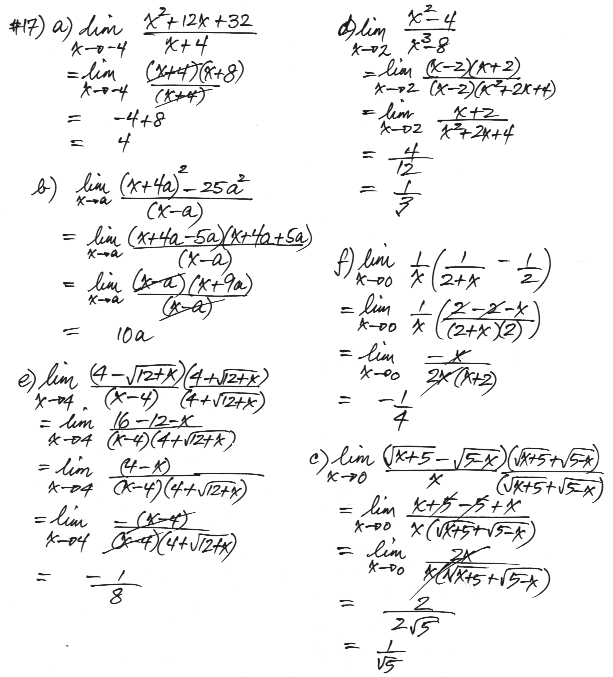 #17) a) lim x→-4 (x²+12x+32)/(x+4)
= lim x→-4 (x+4)(x+8)/(x+4)
= -4+8
= 4
b) lim x→a ((x+4a)²-25a²)/(x-a)
= lim x→a (x+4a-5a)(x+4a+5a)/(x-a)
= lim x→a (x-a)(x+9a)/(x-a)
= 10a
e) lim x→4 (4-√12+x)/(x-4) (4+√12+x)/(4+√12+x)
= lim x→4 (16-12-x)/((x-4)(4+√12+x))
= lim x→4 (4-x)/((x-4)(4+√12+x))
= lim x→4 -(x-4)/((x-4)(4+√12+x))
= -1/8
d) lim x→2 (x²-4)/(x³-8)
= lim x→2 (x-2)(x+2)/((x-2)(x²+2x+4))
= lim x→2 (x+2)/(x²+2x+4)
= 4/12
= 1/3
f) lim x→0 1/x (1/(2+x) - 1/2)
= lim x→0 1/x ((2-2-x)/((2+x)(2)))
= lim x→0 -x/(2x(x+2))
= -1/4
c) lim x→0 (√x+5-√5-x)/x (√x+5+√5-x)/(√x+5+√5-x)
= lim x→0 (x+5-5+x)/(x(√x+5+√5-x))
= lim x→0 2x/(x(√x+5+√5-x))
= 2/(2√5)
= 1/√5